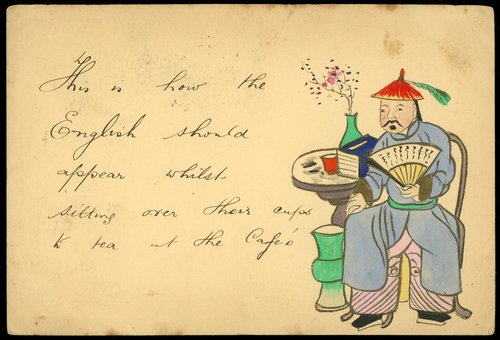 This is how the
English should
appear whilst
sitting over their cups
to tea at the Café's